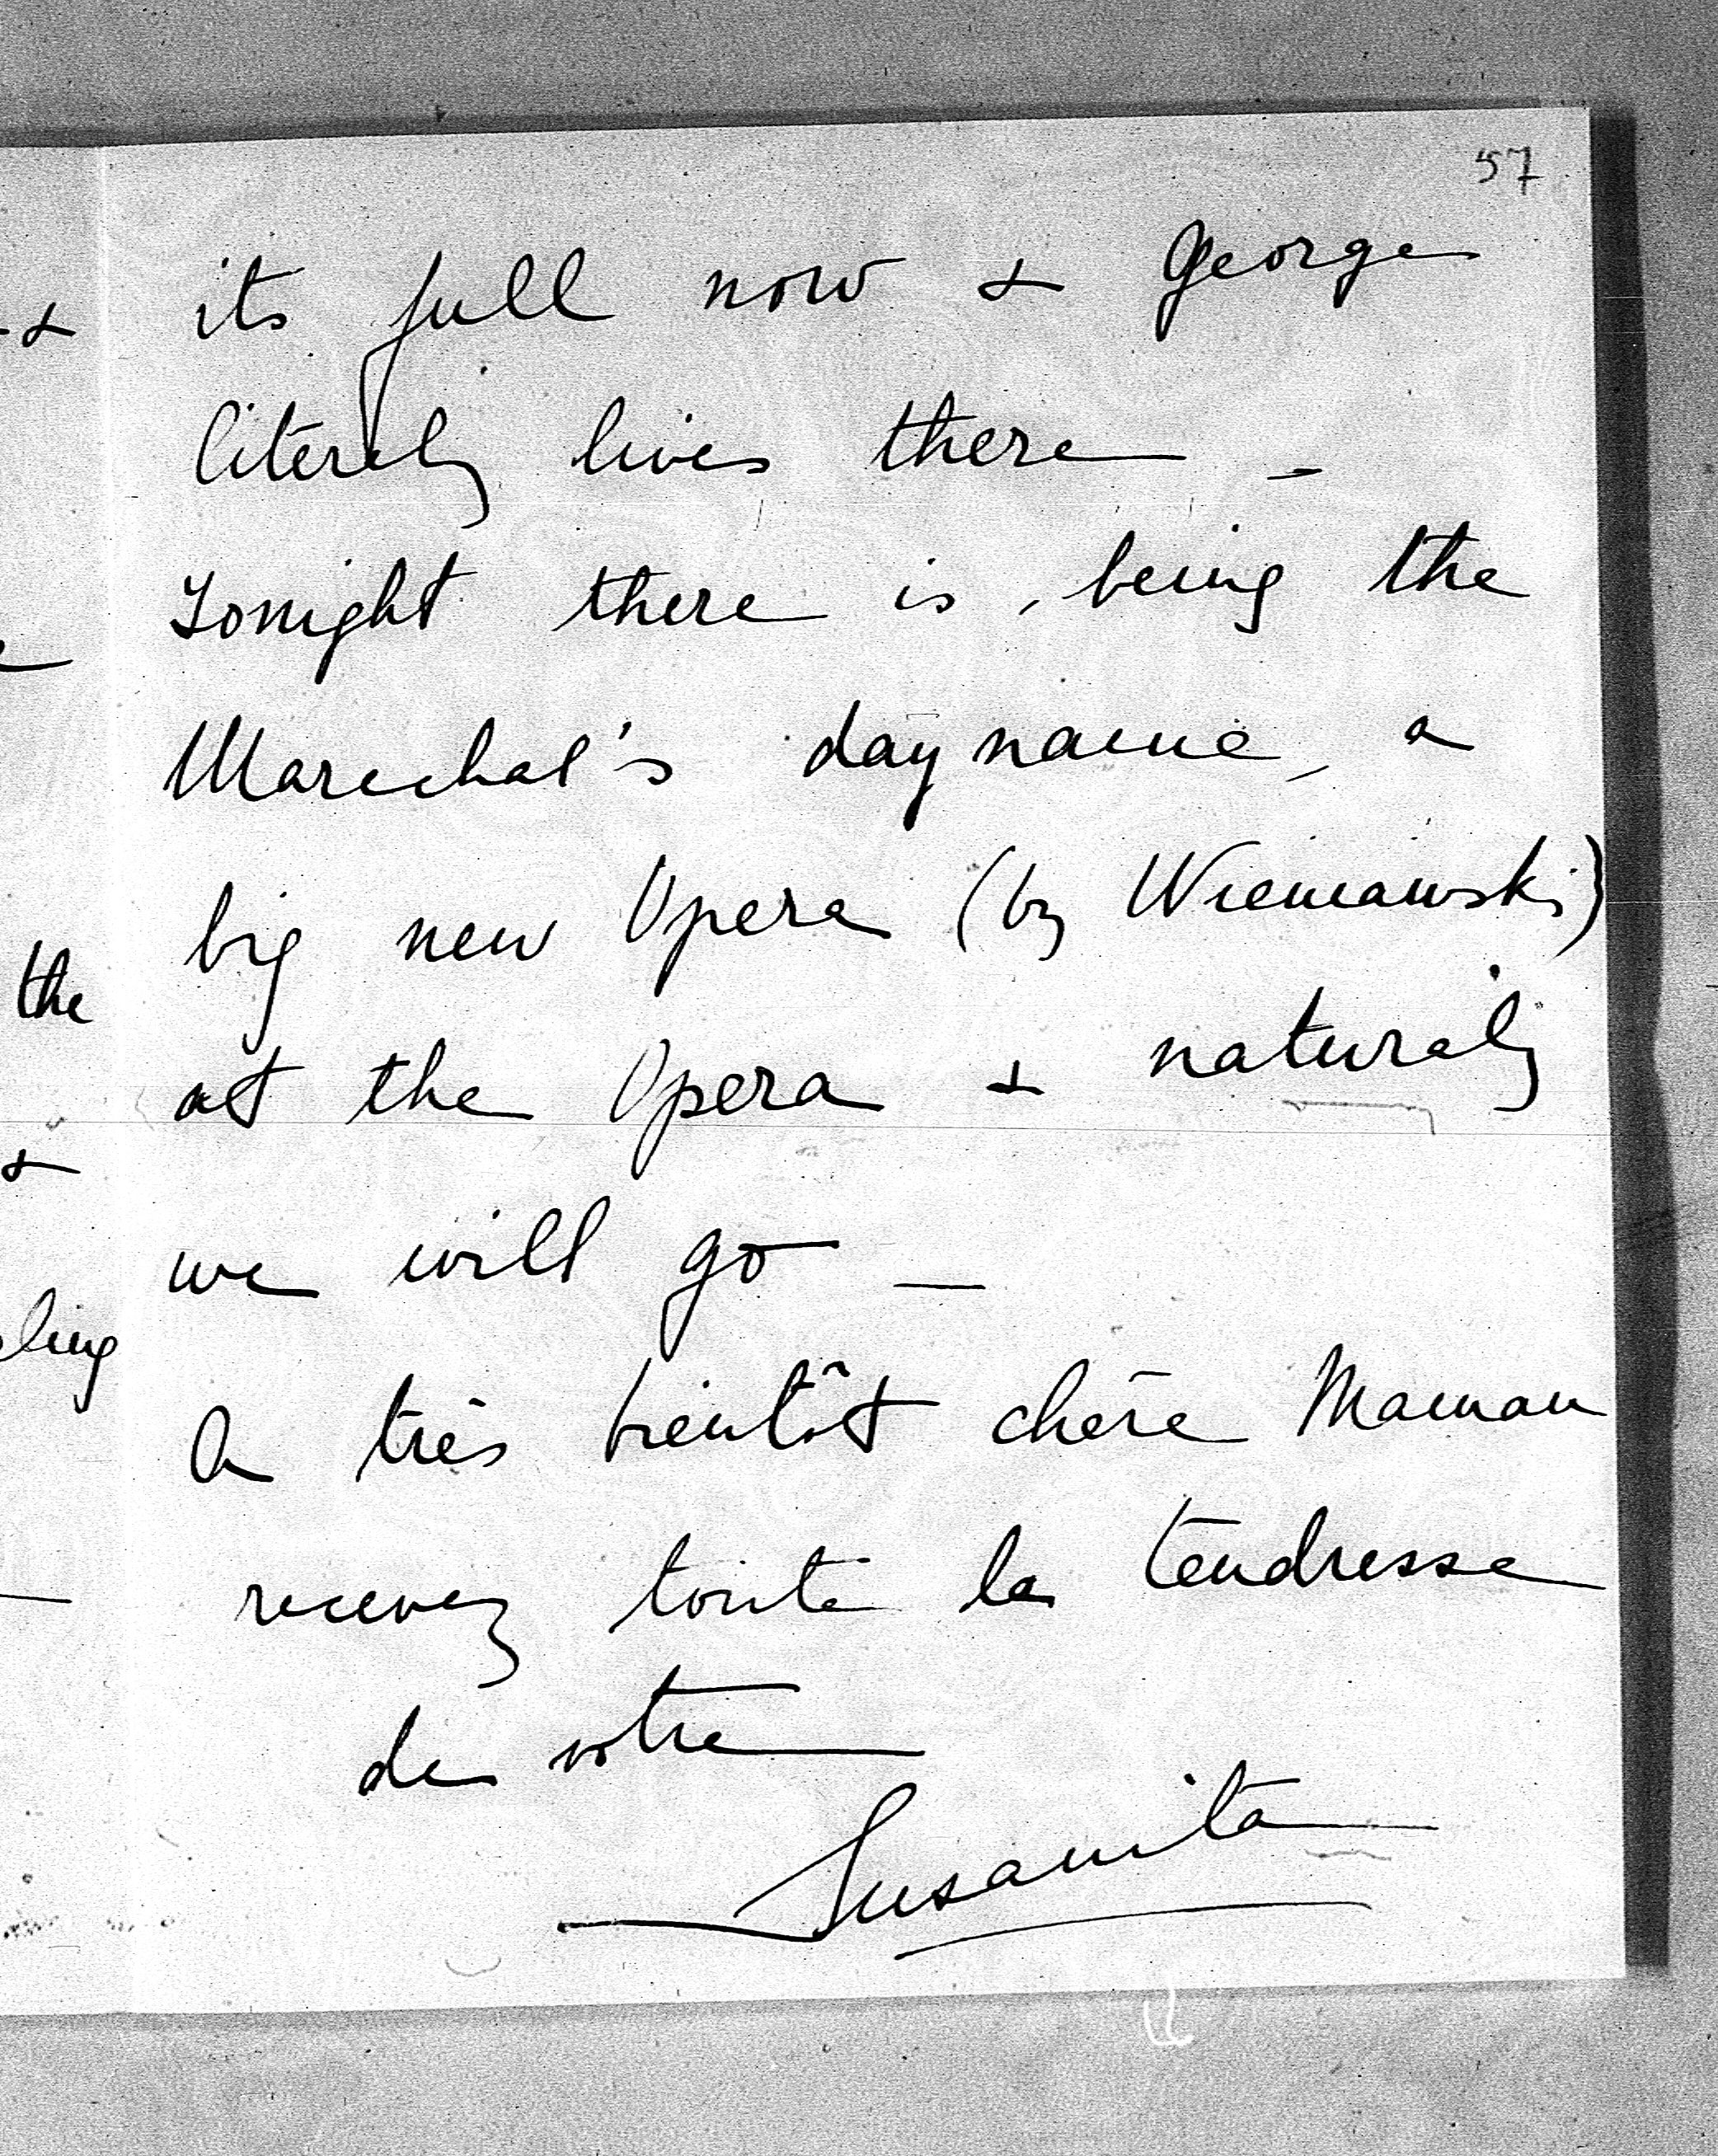 57
its full now & George
literely lives there -
Tonight there is, being the
Marechal's day name, a
big new Opera (by Wieniawski)
at the Opera & naturely
we will go —
A très bientôt chère Maman
recevez toute la tendresse
de votre
Susanita
&
the
&